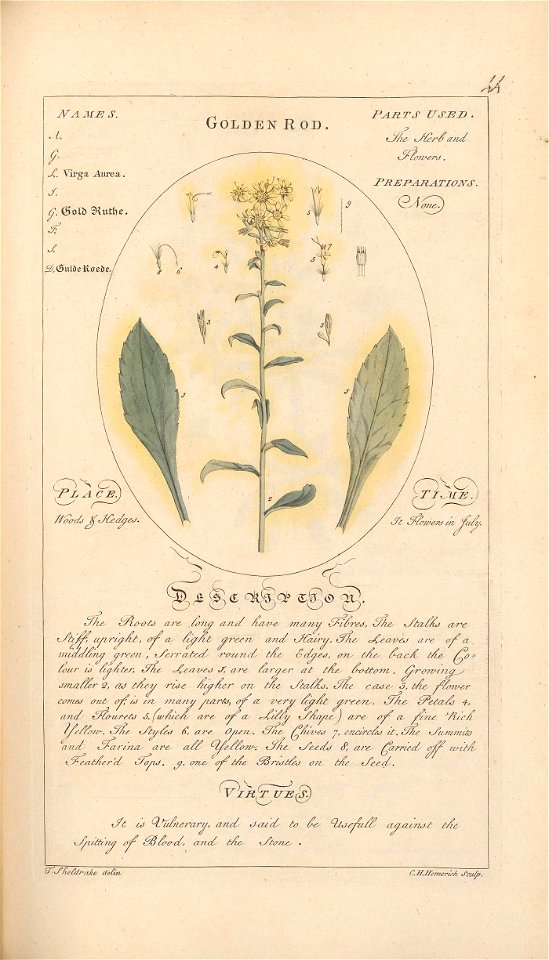 44
NAMES.
GOLDEN ROD.
PARTS USED.
The Herb and
Flowers.
PREPARATIONS.
None.
A.
G.
L. Virga Aurea.
I.
G. Gold Ruthe.
F.
S.
D. Gulde Roede.
PLACE.
Woods & Hedges.
TIME.
It Flowers in July.
DESCRIPTION.
The Roots are long and have many Fibres, The Stalks are
Stiff, upright, of a light green and Hairy. The Leaves are of a
middling green, Serrated round the Edges, on the back the Co-
lour is lighter. The Leaves 1, are larger at the bottom. Growing
smaller 2, as they rise higher on the Stalks. The case 3, the flower
comes out of, is in many parts, of a very light green. The Petals 4,
and Flourets 5, (which are of a Lilly Shape) are of a fine Rich
Yellow. The Styles 6, are Open. The Chives 7, encircls it, The Summits
and Farina are all Yellow. The Seeds 8, are Carried off with
Feather'd Tops. 9, one of the Bristles on the Seed.
VIRTUES.
It is Vulnerary, and said to be Usefull against the
Spitting of Blood, and the Stone.
T. Sheldrake delin
C. H. Hemerich Sculp.